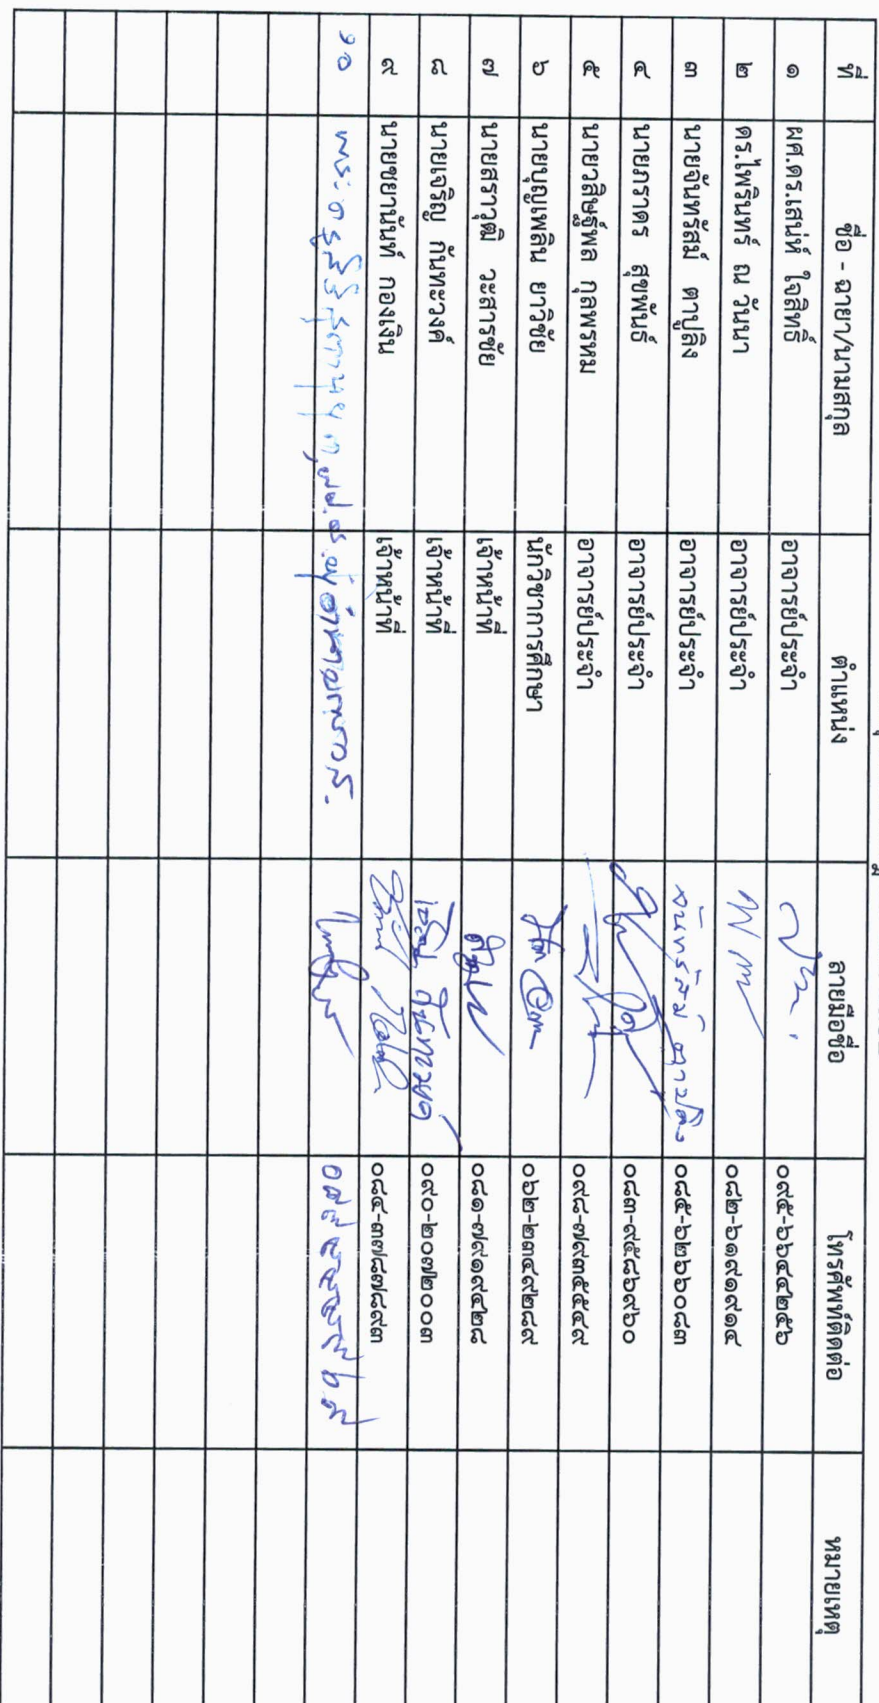 ที่ ชื่อ - ฉายา/นามสกุล ตำแหน่ง ลายมือชื่อ โทรศัพท์ติดต่อ หมายเหตุ
๑ ผศ.ดร.เสน่ห์ ใจสิทธิ์ อาจารย์ประจำ ๐๙๕-๖๖๔๔๒๕๖
๒ ดร.ไพรินทร์ ณ วันนา อาจารย์ประจำ ๐๘๒-๖๑๙๑๙๑๔
๓ นายจันทรัสม์ ตาปูลิง อาจารย์ประจำ จันทรัสม์ ตาปูลิง ๐๘๕-๖๒๖๖๐๘๓
๔ นายภราดร สุขพันธ์ อาจารย์ประจำ ๐๘๓-๙๕๘๖๙๖๐
๕ นายวสิษฐ์พล กุลพรหม อาจารย์ประจำ ๐๙๘-๗๙๓๕๕๔๙
๖ นายบุญเพลิน ยาวิชัย นักวิชาการศึกษา ๐๖๒-๒๓๔๙๒๘๙
๗ นายสราวุฒิ วะสารชัย เจ้าหน้าที่ ๐๘๑-๗๙๑๙๔๒๘
๘ นายเจริญ กันทะวงค์ เจ้าหน้าที่ เจริญ กันทะวงค์ ๐๙๐-๒๐๗๒๐๐๓
๙ นายชยานันท์ กองเงิน เจ้าหน้าที่ ๐๘๔-๓๗๘๗๘๙๓
๑๐